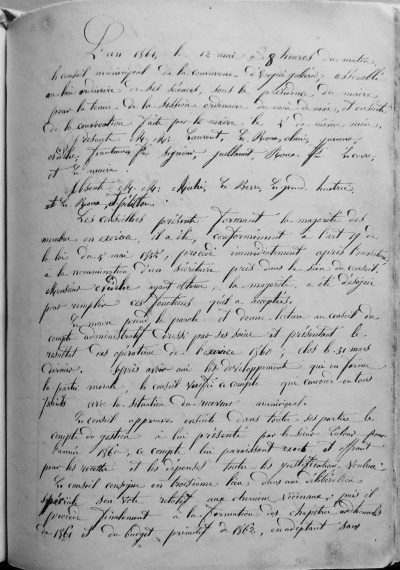 L'an 1861, le 12 mai à 8 heures du matin,
le conseil municipal de la commune d' assemblé
au lieu ordinaire de ses séances, sous la présidence du maire,
pour la tenue de la session ordinaire du mois de mai, et ensuite
de la convocation faite par le maire le 5 du même mois,
Présents M. M. Laurent, Le Roux,
et le maire.
Absents M. M. Le Berre, Le grand,
et Le Roux
Les conseillers présents formant la majorité des
membres en exercice, il a été, conformément à l'art 19 de
la loi du 5 mai 1855, procédé immédiatement après l'ouverture
à la nomination d'un secrétaire pris dans le sein du conseil.
Monsieur ayant obtenu la majorité, a été désigné
pour remplir ces fonctions qu'il a acceptées.
Le maire prend la parole et donne lecture au conseil du
compte administratif dressé par ses soins et présentant le
résultat des opérations de l'exercice 1860, clos le 31 mars
dernier. Après avoir ouï les développements que en forme
la partie morale, le conseil vérifie ce compte que concorde en tous
points avec la situation du receveur municipal.
Le conseil approuve ensuite dans toutes ses parties le
compte de gestion à lui présenté par le sieur pour
l'année 1860, ce compte lui paraissant exact et offrant
pour les recettes et les dépenses toutes les justifications voulues.
Le conseil consigne en troisième lieu dans une délibération
spéciale son vote relatif aux chemins vicinaux, puis il
procède finalement à la formation des chapitres additionnels
de 1861 et du budget primitif de 1862, en adoptant sans